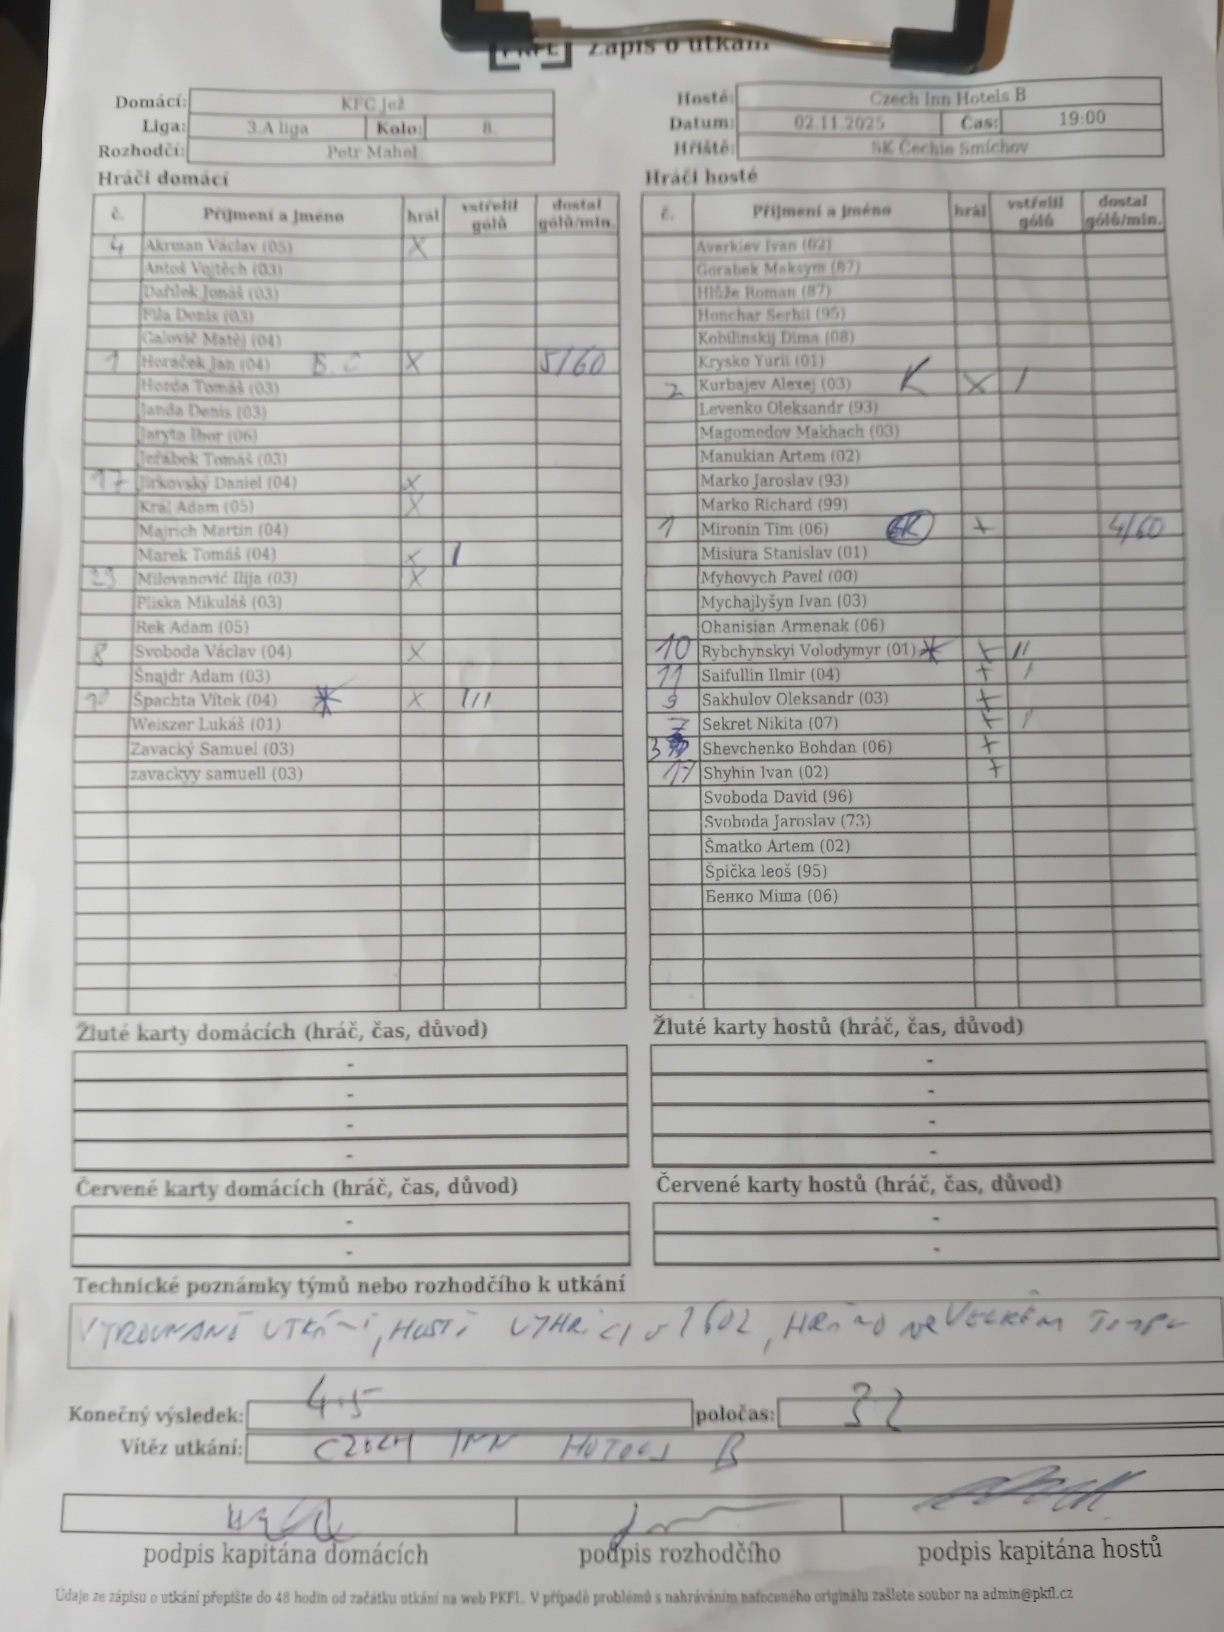 Zápis o utkání
Domácí: KFC Jež
Liga: 3.A liga Kolo: 8.
Rozhodčí: Petr Mahel
Hosté: Czech Inn Hotels B
Datum: 02.11.2025 Čas: 19:00
Hřiště: SK Čechie Smíchov
Hráči domácí
č. Příjmení a jméno hrál vstřelil gólů dostal gólů/min.
4 Akrman Václav (05) X
Antoš Vojtěch (03)
Daňlek Jonáš (03)
Fila Denis (03)
Galovič Matěj (04)
1 Horáček Jan (04) X 5/60
Horda Tomáš (03)
Janda Denis (03)
Jaryta Ihor (06)
Jeřábek Tomáš (03)
17 Jirkovský Daniel (04) X
Král Adam (05) X
Majrich Martin (04)
Marek Tomáš (04) X I
Milovanović Ilija (03) X
Pliska Mikuláš (03)
Rek Adam (05)
8 Svoboda Václav (04) X
Šnajdr Adam (03)
Špachta Vítek (04) * X III
Weiszer Lukáš (01)
Zavacký Samuel (03)
zavackyy samuell (03)
Hráči hosté
č. Příjmení a jméno hrál vstřelil gólů dostal gólů/min.
Averkiev Ivan (02)
Gorabek Maksym (87)
Hlůže Roman (87)
Honchar Serhii (95)
Kobilinskij Dima (08)
Krysko Yurii (01)
2 Kurbajev Alexej (03) K X I
Levenko Oleksandr (93)
Magomedov Makhach (03)
Manukian Artem (02)
Marko Jaroslav (93)
Marko Richard (99)
1 Mironin Tim (06) + 4/60
Misiura Stanislav (01)
Myhovych Pavel (00)
Mychajlyšyn Ivan (03)
Ohanisian Armenak (06)
10 Rybchynskyi Volodymyr (01) * + II
11 Saifullin Ilmir (04) + I
9 Sakhulov Oleksandr (03) +
7 Sekret Nikita (07) + I
3 Shevchenko Bohdan (06) +
17 Shyhin Ivan (02) +
Svoboda David (96)
Svoboda Jaroslav (73)
Šmatko Artem (02)
Špička leoš (95)
Бенко Міша (06)
Žluté karty domácích (hráč, čas, důvod)
-
-
-
-
Žluté karty hostů (hráč, čas, důvod)
-
-
-
-
Červené karty domácích (hráč, čas, důvod)
-
-
Červené karty hostů (hráč, čas, důvod)
-
-
Technické poznámky týmů nebo rozhodčího k utkání
VYROVNANÉ UTKÁNÍ, HOSTÉ
Konečný výsledek: 4:5 poločas: 3 2
Vítěz utkání: CZECH INN HOTELS B
podpis kapitána domácích podpis rozhodčího podpis kapitána hostů
Údaje ze zápisu o utkání přepište do 48 hodin od začátku utkání na web PKFL. V případě problémů s nahráváním nafoceného originálu zašlete soubor na admin@pkfl.cz